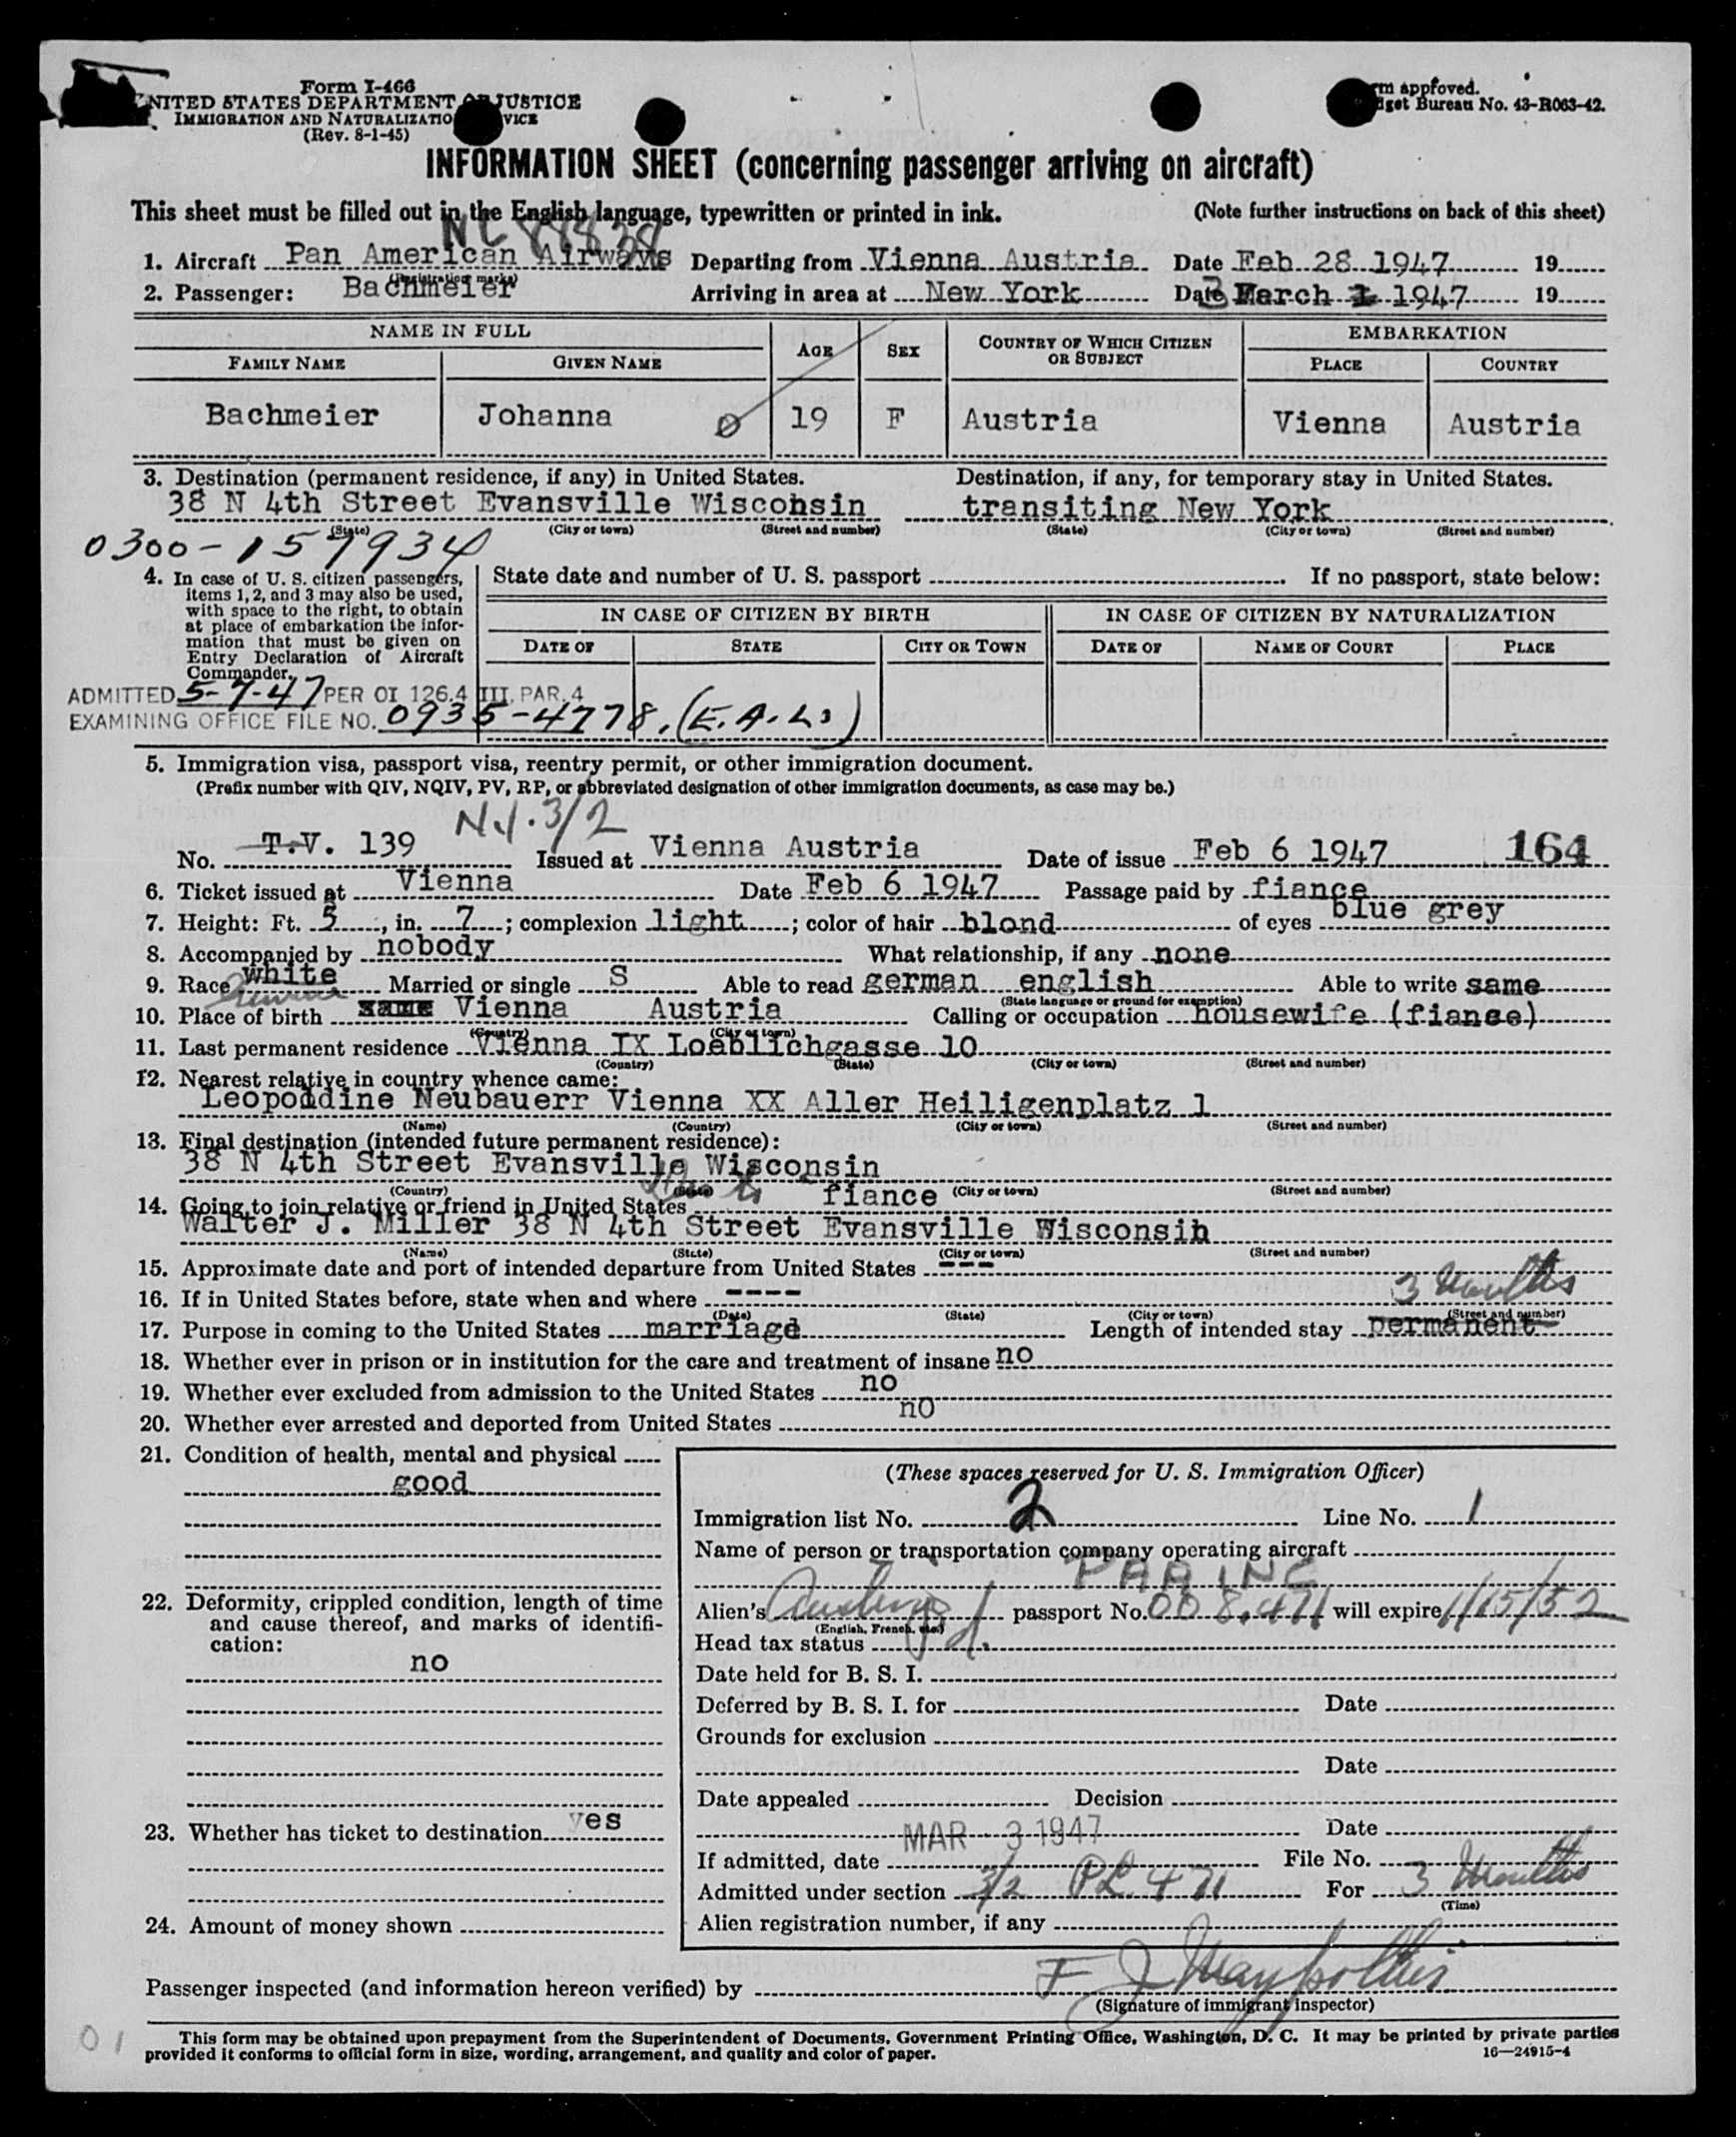 Form I-466
UNITED STATES DEPARTMENT OF JUSTICE
IMMIGRATION AND NATURALIZATION SERVICE
(Rev. 8-1-45)
Form approved.
Budget Bureau No. 43-R063-42.
INFORMATION SHEET (concerning passenger arriving on aircraft)
This sheet must be filled out in the English language, typewritten or printed in ink. (Note further instructions on back of this sheet)
NC
1. Aircraft Pan American Airways Departing from Vienna Austria Date Feb 28 1947 19
(Registration marks)
2. Passenger: Bachmeier Arriving in area at New York Date 3 March 1 1947 19
NAME IN FULL AGE SEX COUNTRY OF WHICH CITIZEN OR SUBJECT EMBARKATION
FAMILY NAME GIVEN NAME PLACE COUNTRY
Bachmeier Johanna 19 F Austria Vienna Austria
3. Destination (permanent residence, if any) in United States. Destination, if any, for temporary stay in United States.
38 N 4th Street Evansville Wisconsin transiting New York
(State) (City or town) (Street and number) (State) (City or town) (Street and number)
0300-157934
4. In case of U. S. citizen passengers, items 1, 2, and 3 may also be used, with space to the right, to obtain at place of embarkation the information that must be given on Entry Declaration of Aircraft Commander.
State date and number of U. S. passport If no passport, state below:
IN CASE OF CITIZEN BY BIRTH IN CASE OF CITIZEN BY NATURALIZATION
DATE OF STATE CITY OR TOWN DATE OF NAME OF COURT PLACE
ADMITTED 5-7-47 PER OI 126.4 III, PAR. 4
EXAMINING OFFICE FILE NO. 0935-4778. (E.A.L.)
5. Immigration visa, passport visa, reentry permit, or other immigration document.
(Prefix number with QIV, NQIV, PV, RP, or abbreviated designation of other immigration documents, as case may be.)
3/2
No. T.V. 139 Issued at Vienna Austria Date of issue Feb 6 1947 164
6. Ticket issued at Vienna Date Feb 6 1947 Passage paid by fiance
7. Height: Ft. 5, in. 7; complexion light; color of hair blond of eyes blue grey
8. Accompanied by nobody What relationship, if any none
9. Race white Married or single S Able to read german english Able to write same
(State language or ground for exemption)
10. Place of birth Vienna Austria Calling or occupation housewife (fianse)
(Country) (City or town)
11. Last permanent residence Vienna IX Loeblichgasse 10
(Country) (State) (City or town) (Street and number)
12. Nearest relative in country whence came:
Leopoldine Neubauerr Vienna XX Aller Heiligenplatz 1
(Name) (Country) (City or town) (Street and number)
13. Final destination (intended future permanent residence):
38 N 4th Street Evansville Wisconsin
(Country) (State) (City or town) (Street and number)
14. Going to join relative or friend in United States fiance
Walter J. Miller 38 N 4th Street Evansville Wisconsin
(Name) (State) (City or town) (Street and number)
15. Approximate date and port of intended departure from United States ---
16. If in United States before, state when and where ----
(Date) (State) (City or town) (Street and number)
3 Months
17. Purpose in coming to the United States marriage Length of intended stay permanent
18. Whether ever in prison or in institution for the care and treatment of insane no
19. Whether ever excluded from admission to the United States no
20. Whether ever arrested and deported from United States no
21. Condition of health, mental and physical
good
22. Deformity, crippled condition, length of time and cause thereof, and marks of identification:
no
23. Whether has ticket to destination yes
24. Amount of money shown
(These spaces reserved for U. S. Immigration Officer)
Immigration list No. 2 Line No. 1
Name of person or transportation company operating aircraft
PAA INC
Alien's passport No. 008,471 will expire 1/15/52
(English, French, etc.)
Head tax status
Date held for B. S. I.
Deferred by B. S. I. for Date
Grounds for exclusion
Date
Date appealed Decision
Date
If admitted, date MAR - 3 1947 File No.
Admitted under section 3/2 PL 471 For 3 Months
(Time)
Alien registration number, if any
Passenger inspected (and information hereon verified) by
(Signature of immigrant inspector)
01
This form may be obtained upon prepayment from the Superintendent of Documents, Government Printing Office, Washington, D. C. It may be printed by private parties
provided it conforms to official form in size, wording, arrangement, and quality and color of paper. 16—24915-4